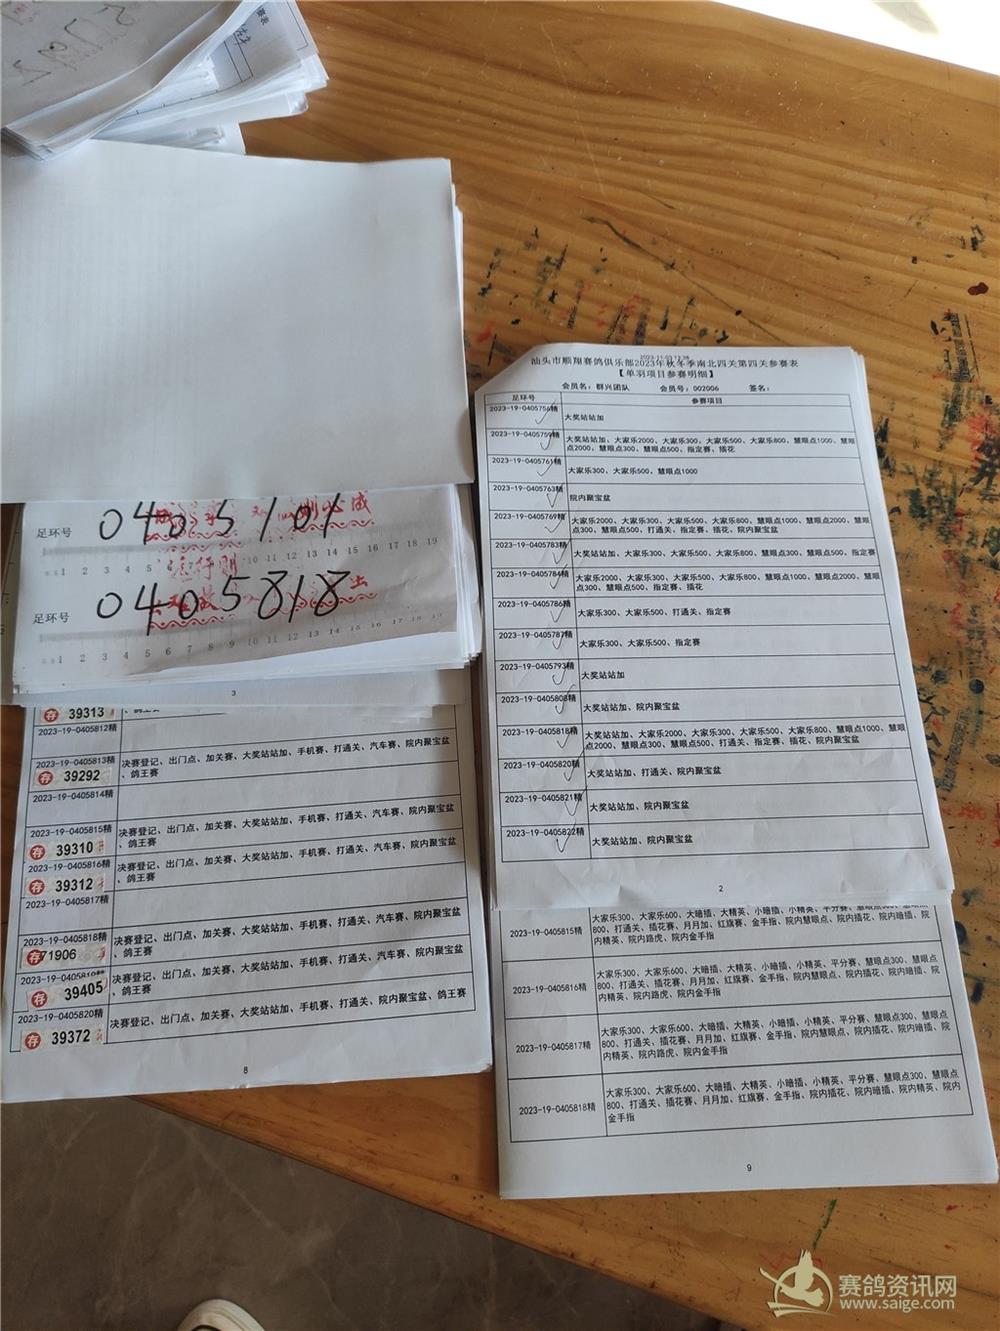 2023-11-03 13:38
汕头市顺翔赛鸽俱乐部2023年秋冬季南北四关第四关参赛表
【单羽项目参赛明细】
会员名：群兴团队 会员号：002006 签名：
足环号 参赛项目
2023-19-0405756精 大奖站站加
2023-19-0405759精 大奖站站加、大家乐2000、大家乐300、大家乐500、大家乐800、慧眼点1000、慧眼
点2000、慧眼点300、慧眼点500、指定赛、插花
2023-19-0405761精 大家乐300、大家乐500、慧眼点1000
2023-19-0405763精 院内聚宝盆
2023-19-0405769精 大家乐2000、大家乐300、大家乐500、大家乐800、慧眼点1000、慧眼点2000、慧眼
点300、慧眼点500、打通关、指定赛、插花、院内聚宝盆
2023-19-0405783精 大奖站站加、大家乐300、大家乐500、大家乐800、慧眼点300、慧眼点500、指定赛
2023-19-0405784精 大家乐2000、大家乐300、大家乐500、大家乐800、慧眼点1000、慧眼点2000、慧眼
点300、慧眼点500、指定赛、插花
2023-19-0405786精 大家乐300、大家乐500、打通关、指定赛
2023-19-0405787精 大家乐300、大家乐500、指定赛
2023-19-0405793精 大奖站站加
2023-19-0405808精 大奖站站加、院内聚宝盆
2023-19-0405818精 大奖站站加、大家乐2000、大家乐300、大家乐500、大家乐800、慧眼点1000、慧眼
点2000、慧眼点300、慧眼点500、打通关、指定赛、插花、院内聚宝盆
2023-19-0405820精 大奖站站加、打通关、院内聚宝盆
2023-19-0405821精 大奖站站加、院内聚宝盆
2023-19-0405822精 大奖站站加、院内聚宝盆
2
足环号
1 2 3 4 5 10 11 12 13 14 15 16 17 18 19
足环号 0405818
1 2 3 4 5 6 7 8 9 10 11 12 13 14 15 16 17 18 19
3
存 39313 、鸽王赛
2023-19-0405812精
2023-19-0405813精 决赛登记、出门点、加关赛、大奖站站加、手机赛、打通关、汽车赛、院内聚宝盆
存 39292 、鸽王赛
2023-19-0405814精
2023-19-0405815精 决赛登记、出门点、加关赛、大奖站站加、手机赛、打通关、汽车赛、院内聚宝盆
存 39310 、鸽王赛
2023-19-0405816精 决赛登记、出门点、加关赛、大奖站站加、手机赛、打通关、汽车赛、院内聚宝盆
存 39312 、鸽王赛
2023-19-0405817精
2023-19-0405818精 决赛登记、出门点、加关赛、大奖站站加、手机赛、打通关、汽车赛、院内聚宝盆
存 71906 、鸽王赛
2023-19-0405819精 决赛登记、出门点、加关赛、大奖站站加、手机赛、打通关、汽车赛、院内聚宝盆
存 39405 、鸽王赛
2023-19-0405820精 决赛登记、出门点、加关赛、大奖站站加、手机赛、打通关、院内聚宝盆、鸽王赛
存 39372
8
2023-19-0405815精 大家乐300、大家乐600、大暗插、大精英、小暗插、小精英、平分赛、慧眼点300、慧眼点
800、打通关、插花赛、月月加、红旗赛、金手指、院内慧眼点、院内插花、院内暗插、院
内精英、院内路虎、院内金手指
2023-19-0405816精 大家乐300、大家乐600、大暗插、大精英、小暗插、小精英、平分赛、慧眼点300、慧眼点
800、打通关、插花赛、月月加、红旗赛、金手指、院内慧眼点、院内插花、院内暗插、院
内精英、院内路虎、院内金手指
2023-19-0405817精 大家乐300、大家乐600、大暗插、大精英、小暗插、小精英、平分赛、慧眼点300、慧眼点
800、打通关、插花赛、月月加、红旗赛、金手指、院内慧眼点、院内插花、院内暗插、院
内精英、院内路虎、院内金手指
2023-19-0405818精 大家乐300、大家乐600、大暗插、大精英、小暗插、小精英、平分赛、慧眼点300、慧眼点
800、打通关、插花赛、月月加、红旗赛、金手指、院内插花、院内暗插、院内精英、院内
金手指
9
赛鸽资讯网
www.saige.com